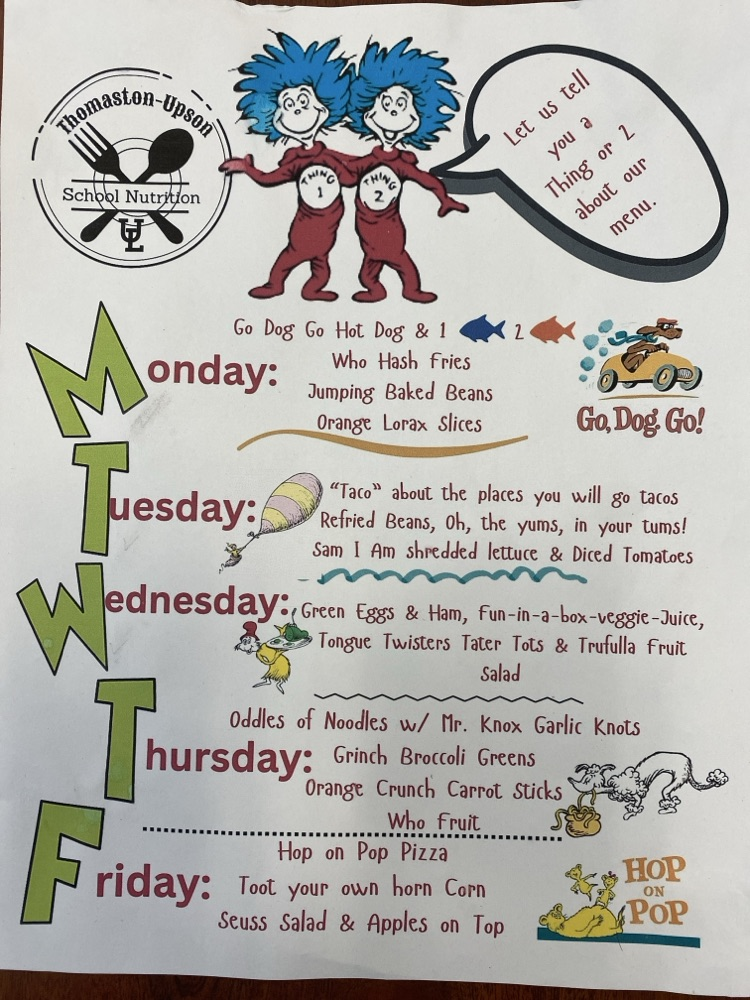 Thomaston-Upson
School Nutrition
UL
THING
1
THING
2
Let us tell
you a
Thing or 2
about our
menu.
Monday:
Go Dog Go Hot Dog & 1 2
Who Hash Fries
Jumping Baked Beans
Orange Lorax Slices
Go, Dog. Go!
Tuesday:
“Taco” about the places you will go tacos
Refried Beans, Oh, the yums, in your tums!
Sam I Am shredded lettuce & Diced Tomatoes
Wednesday:
Green Eggs & Ham, Fun-in-a-box-veggie-Juice,
Tongue Twisters Tater Tots & Trufulla Fruit
Salad
Thursday:
Oddles of Noodles w/ Mr. Knox Garlic Knots
Grinch Broccoli Greens
Orange Crunch Carrot Sticks
Who Fruit
Friday:
Hop on Pop Pizza
Toot your own horn Corn
Seuss Salad & Apples on Top
HOP
ON
POP